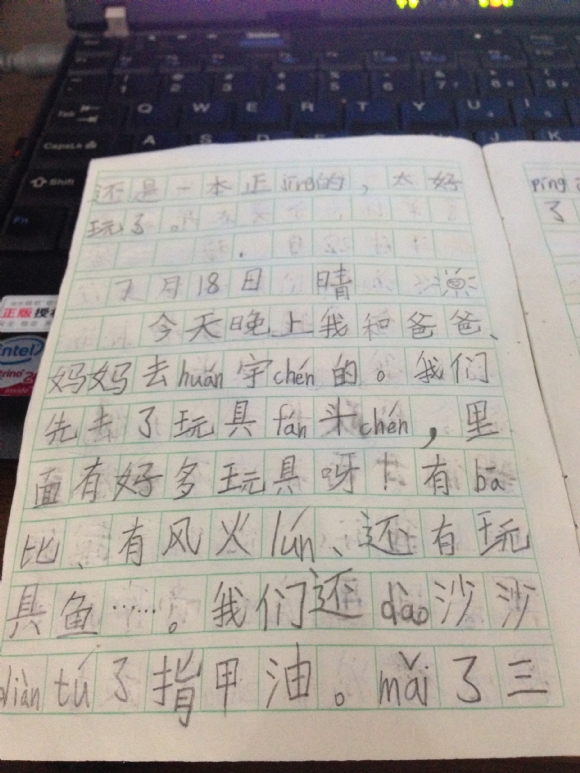 Q W E R T Y U
Tab
CapsLk A S
Shift
Fn
正版授
intel
inside
还是一本正jīng的，太好
玩了。
7月18日 晴
今天晚上我和爸爸、
妈妈去huán宇chén的。我们
先去了玩具fán米chén，里
面有好多玩具呀！有bā
比、有风火lún、还有玩
具鱼……。我们还dào沙沙
diàn tú了指甲油。mǎi了三
píng
了